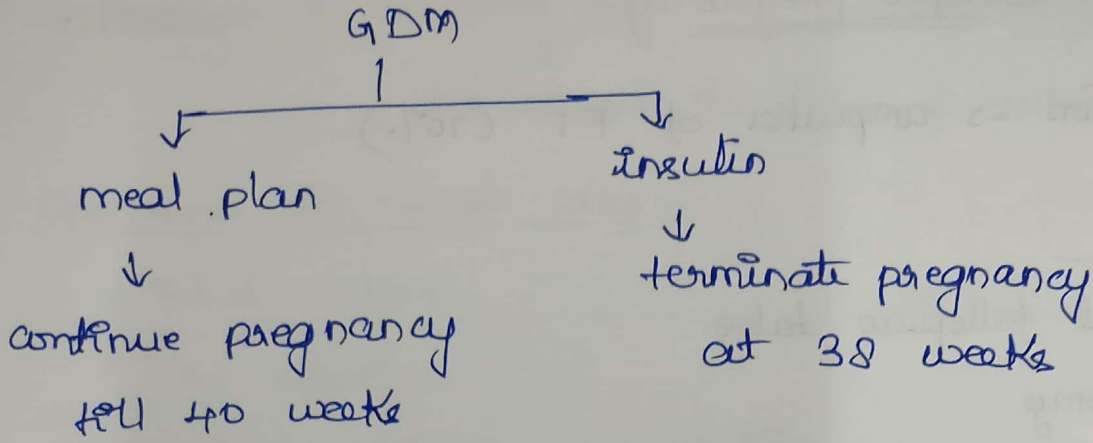 GDM
meal plan
insulin
continue pregnancy
till 40 weeks
terminate pregnancy
at 38 weeks